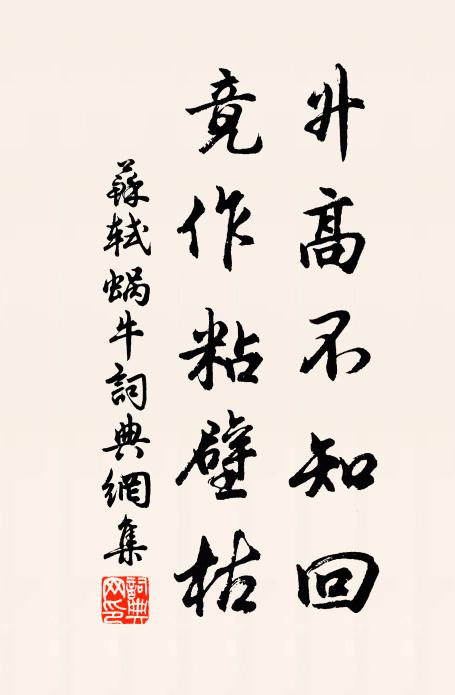 升高不知回
竟作粘壁枯
蘇軾蝸牛詞典網集
詞典網印